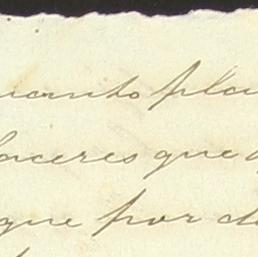 uanto pla
laceres que
que por d